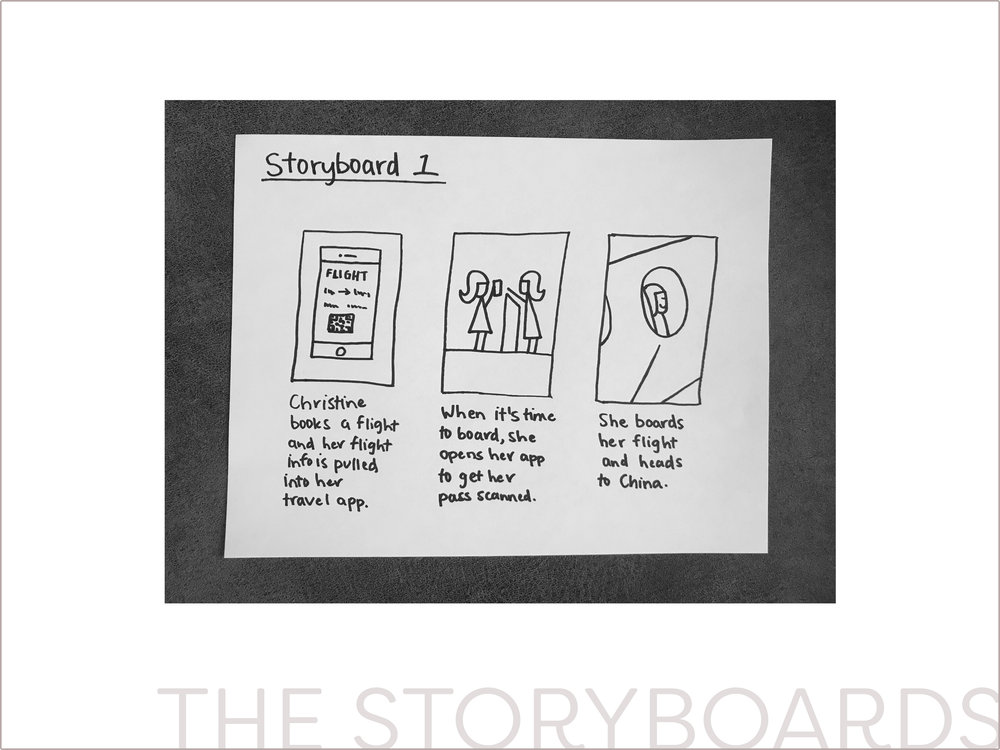 Storyboard 1
FLIGHT
Christine
books a flight
and her flight
info is pulled
into her
travel app.
When it's time
to board, she
opens her app
to get her
pass scanned.
She boards
her flight
and heads
to China.
THE STORYBOARDS